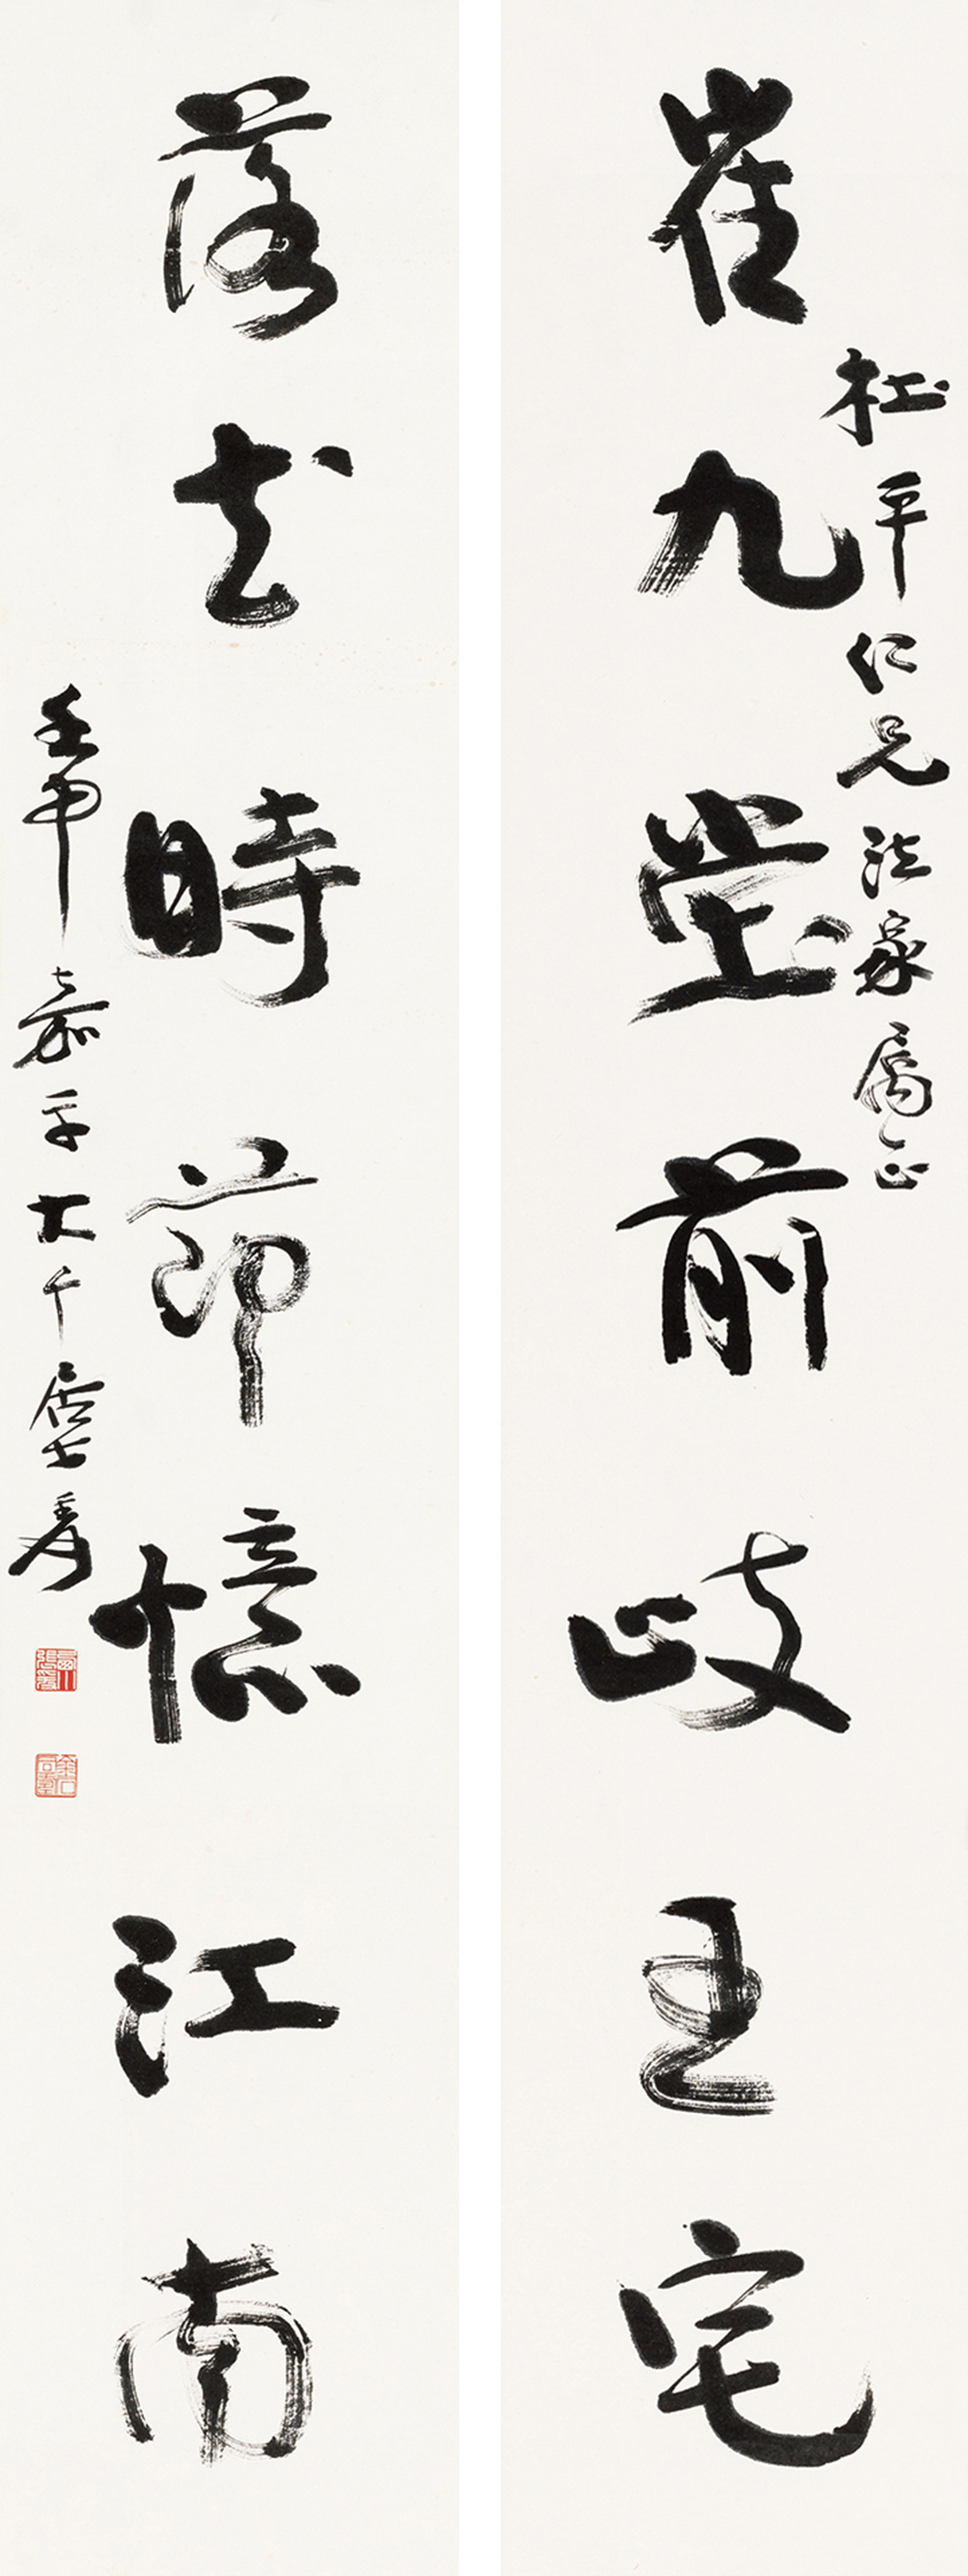 杜平仁兄法家属正
崔九堂前岐王宅
落花時節憶江南
壬申嘉平大千居士爰